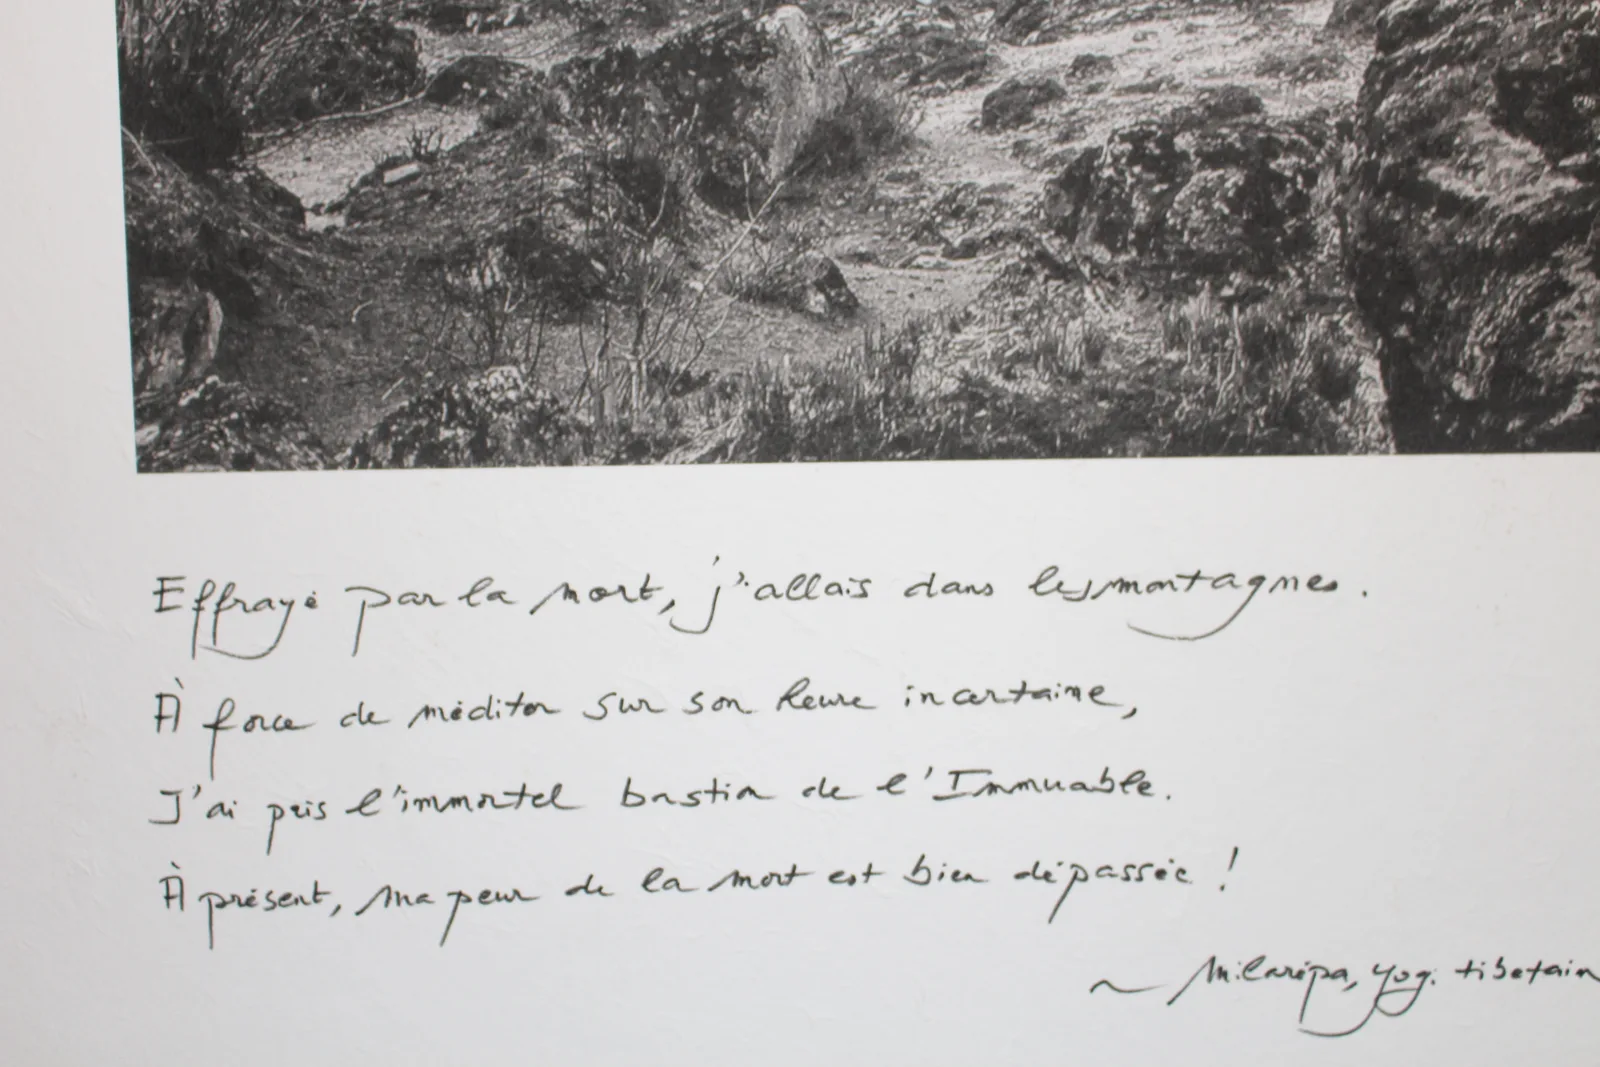 Effrayé par la mort, j'allais dans les montagnes.
À force de méditer sur son heure incertaine,
J'ai pris l'immortel bastion de l'Immuable.
À présent, ma peur de la mort est bien dépassée !
~ Milarépa, yogi tibétain